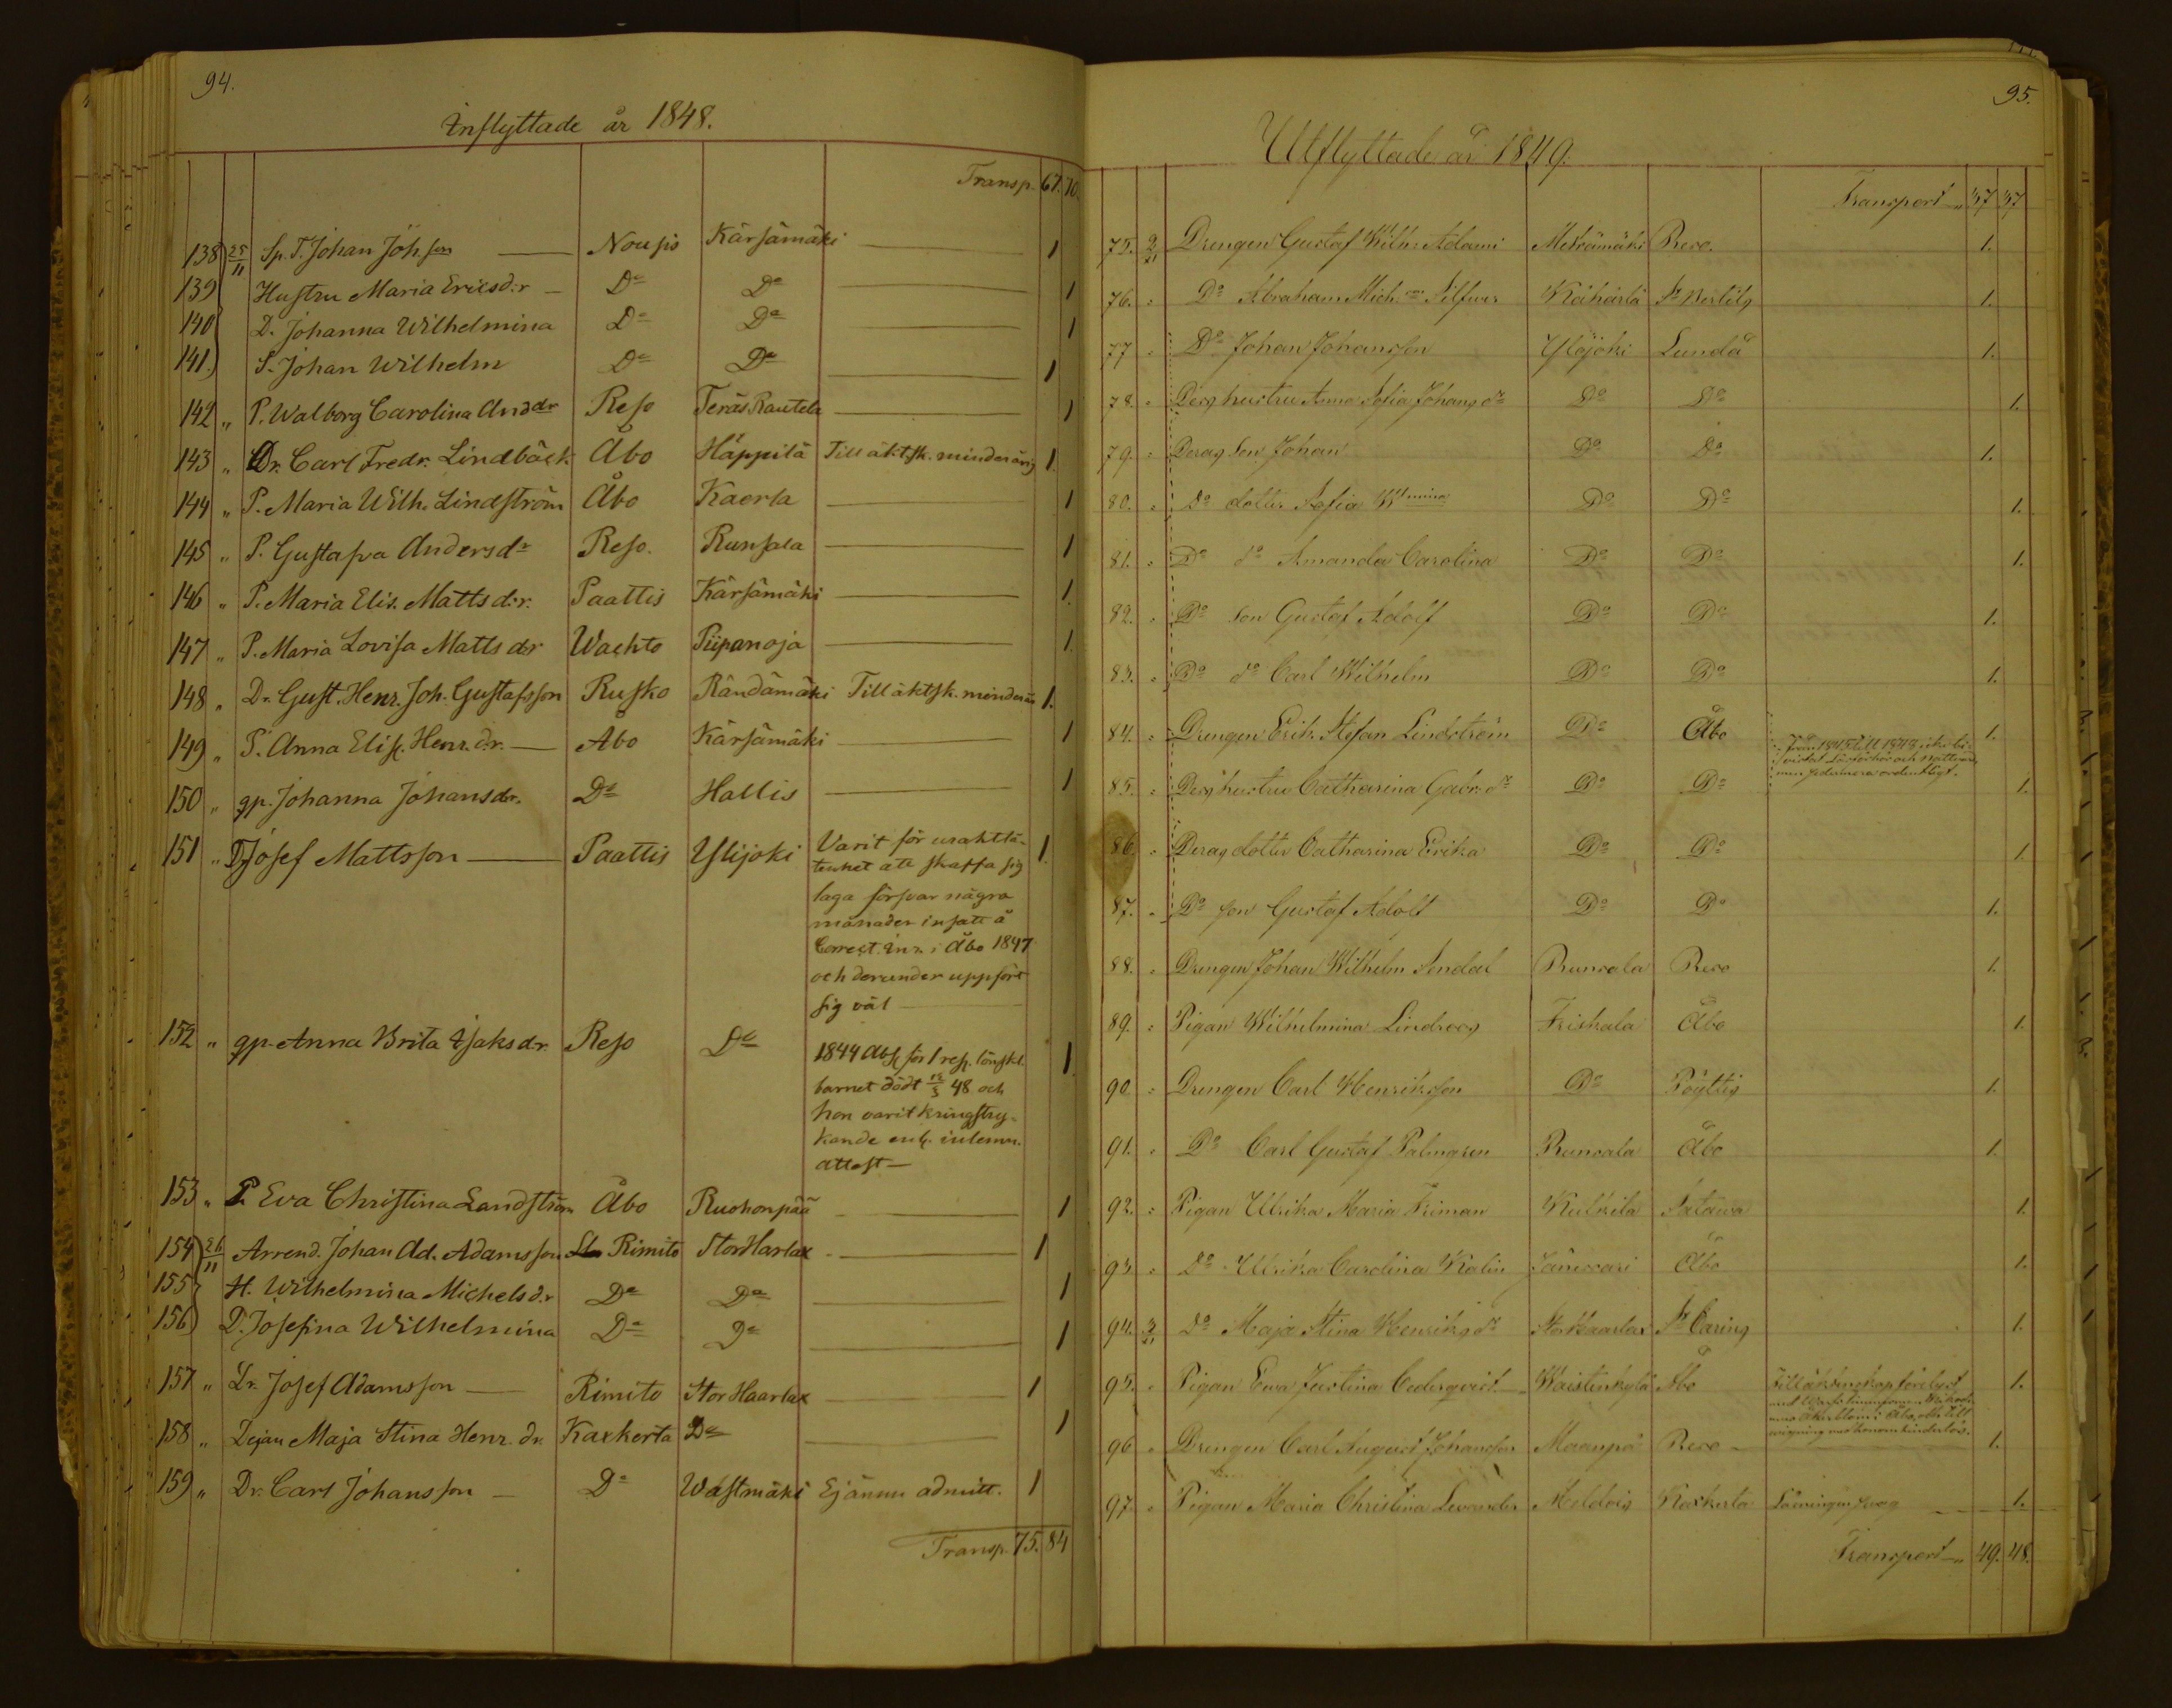 94.
Inflyttade år 1848.
Transp. 67. 70.
138 25/11 Sp. T. Johan Joh.son Nousis Kärsämäki 1
139 Hustru Maria Ericsd:r Do Do 1
140 D. Johanna Wilhelmina Do Do 1
141 S. Johan Wilhelm Do Do 1
142 " P. Walborg Carolina And.dr Reso Teräs Rautela 1
143 " Dr. Carl Fredr. Lindbäck Åbo Häppilä Till äktsk. minderårig 1
144 " P. Maria Wilh. Lindström Åbo Kaerla 1
145 " P. Gustafva Andersdr Reso. Runsala 1
146 " P. Maria Elis. Mattsd:r. Paattis Kärsämäki 1.
147 " P. Maria Lovisa Mattsd:r Wachto Piipanoja 1.
148 " Dr. Gust. Henr. Joh. Gustafsson Rusko Rändämäki Till äktsk. minderår 1.
149 " P. Anna Elis. Henr. dr. Åbo Kärsämäki 1
150 " gp. Johanna Johansdr. Do Hallis 1
151 " Dr Josef Mattsson Paattis Ylijoki Varit för uraktlå- 1.
tenhet att skaffa sig
laga försvar några
månader insatt å
Correct. inr. i Åbo 1847
och derunder uppfört
sig väl
152 " gp. Anna Brita Isaksdr. Reso Do 1844 Abs. för 1 resp. lönskl. 1.
barnet dödt 12/3 48 och
hon varit kringstry-
kande enl. inlemn.
attest
153 " P. Eva Christina Landström Åbo Ruohonpää 1
154 26/11 Arrend. Johan Ad. Adamsson Rimito StorHarlax 1
155 H. Wilhelmina Michelsd:r Do Do 1
156 D. Josefina Wilhelmina Do Do 1
157 " Dr. Josef Adamsson Rimito Stor Haarlax 1
158 " Lejan Maja Stina Henr. dr. Kaxkerta Do 1
159 " Dr. Carl Johansson Do Wästmäki Ej ännu admitt. 1
Transp. 75. 84
95.
Utflyttade år 1849.
Transport 37 37
75. Drengen Gustaf Wilh. Adami Metsämäki Reso. 1.
76. Do Abraham Mich.son Silfver Kähärlä St Bertils 1.
77 Do Johan Johansson Ylijoki Lundå 1.
78. Des hustru Anna Sofia Johansdr Do Do 1.
79. Deras Son Johan Do Do 1.
80. Do dotter Sofia Wmina Do Do 1.
81. Do do Amanda Carolina Do Do 1.
82. Do son Gustaf Adolf Do Do 1.
83. Do do Carl Wilhelm Do Do 1.
84. Drengen Erik Stefan Lindström Do Åbo 1.
Från 1845 till 1848 icke be-
vistat Läsförhör och Nattvard,
men sedermera ordentligt.
85. Des hustru Catharina Gabr.dr Do Do 1.
86. Deras dotter Catharina Erika Do Do 1.
87. Do son Gustaf Adolf Do Do 1.
88. Drengen Johan Wilhelm Sendal Runsala Reso 1.
89. Pigan Wilhelmina Lindroos Friskala Åbo 1.
90. Drengen Carl Henriksson Do Pöyttis 1.
91. Do Carl Gustaf Palmgren Runsala Åbo 1.
92. Pigan Ulrika Maria Friman Kulkila Satawa 1.
93. Do Ulrika Carolina Kalin Jänissari Åbo 1.
94. Do Maja Stina Henriksdr StorHaarlax St Carins 1.
95. Pigan Ewa Justina Cederqvist Waistenkylä Åbo Till äktenskap förelyst 1.
96 Drengen Carl August Johansson Maanpä Reso 1.
97. Pigan Maria Christina Levander Meldois Kaxkerta Läsningen svag 1.
Transport 49. 48.